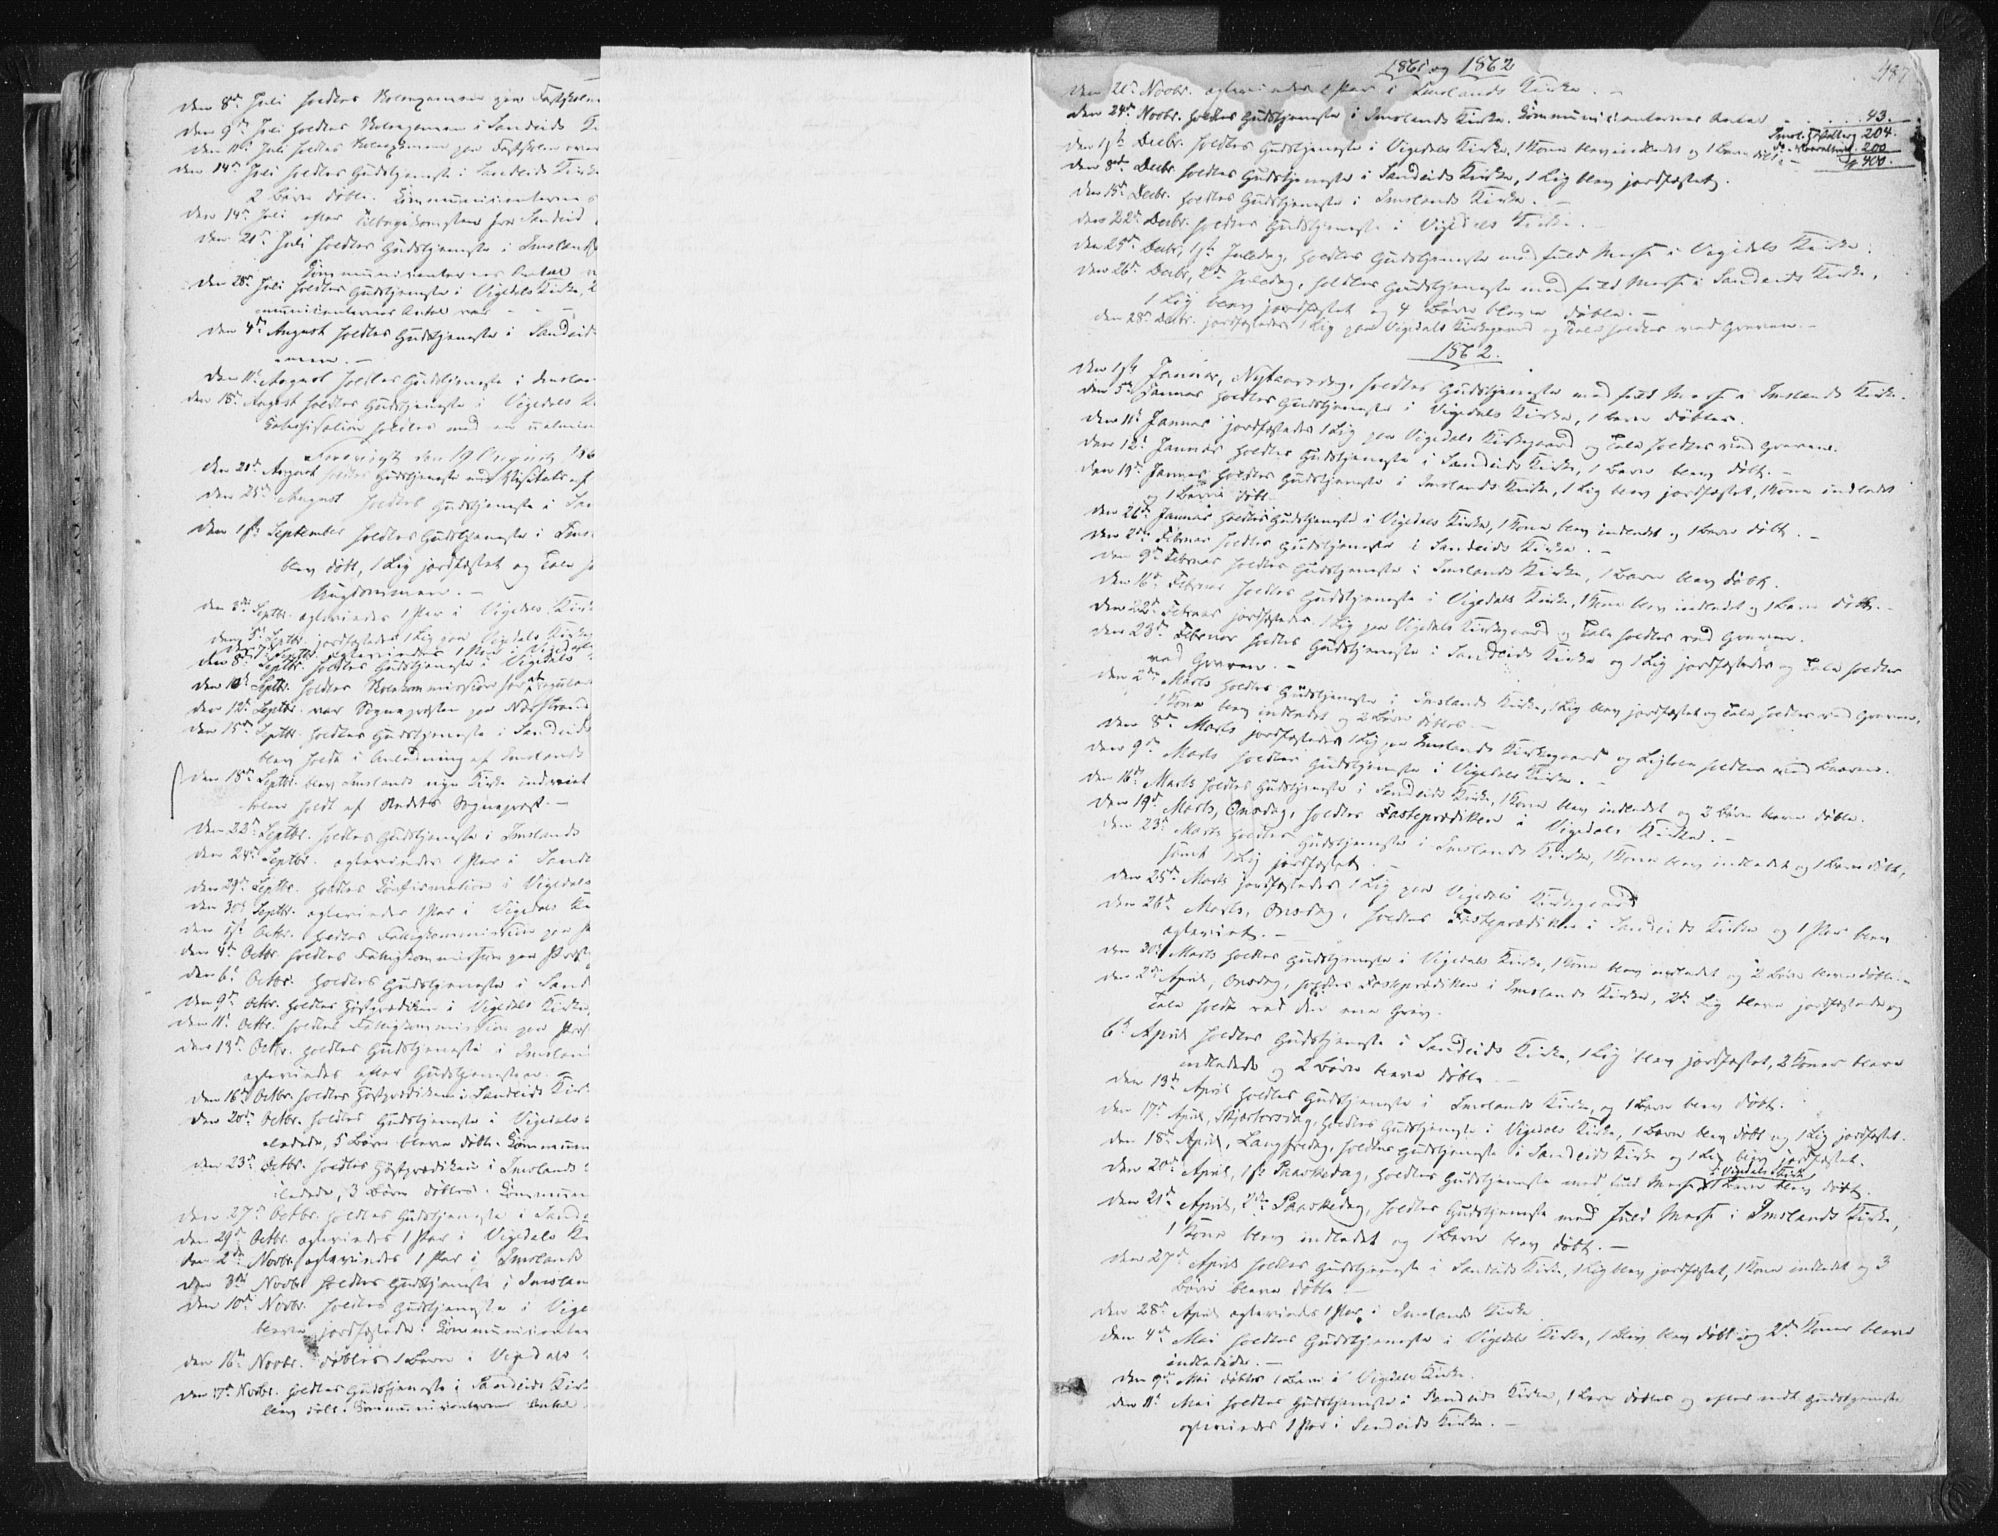 den 8de Juli holdtes
den 9de Juli holdtes i Sandeids
den 11te Juli holdtes
den 14de Juli holdtes Gudstjeneste i Sandeids Kirke
2 Børn døbte. Communicanternes
den 14de Juli efter Tilbagekomsten fra Sandeid
den 21de Juli holdtes Gudstjeneste i Imslands
Communicanternes Antal
den 28de Juli holdtes Gudstjeneste i Vigedals Kirke,
municanternes Antal var
den 4de August holdtes Gudstjeneste i Sandeids
den 11te August holdtes Gudstjeneste i Imslan
den 18de August holdtes Gudstjeneste i Vigedals
Catechisation holdtes med en
den 19 August 186
den 21de August holdtes Gudstjeneste med Visitats af
den 25de August holdtes Gudstjeneste i San
den 1ste September holdtes Gudstjeneste i Ims
blev døbt, 1 Lig jordfæstet og Tale
Ungdommen. -
den 3die Septbr. ægteviedes 1 Par i Vigedals Kirke
den 5te Septbr. jordfæstedes 1 Lig paa Vigedals Kirkeg
den 7de Septbr. ægteviedes 1 Par i Vigedals
den 8de Septbr. holdtes Gudstjeneste i Vigedals
den 10de Septbr. holdtes Skolekommission for at regulere
den 12te Septbr. var Sognepræsten paa Nærstrand
den 15de Septbr. holdtes Gudstjeneste i Sandeids
blev holdt i Anledning af Imslands
den 18de Septbr. blev Imslands nye Kirke indviet
talen holdt af Stedets Sognepræst. -
den 22de Septbr. holdtes Gudstjeneste i Imslands
den 24de Septbr. ægteviedes 1 Par i Sande
den 29de Septbr. holdtes Confirmation i Vigedals
den 30te Septbr. ægteviedes 1 Par i Vigedals Ki
den 1ste Octbr. holdtes Fattigkommission paa
den 4de Octbr. holdtes Fattigkommission paa Præst
den 6te Octbr. holdtes Gudstjeneste i Sand
den 9de Octbr. holdtes Høstprædiken i Vigedals Kirke,
den 11te Octbr. holdtes Fattigkommission paa Præst
den 13de Octbr. holdtes Gudstjeneste i Imslan
ægteviedes efter Gudstjenesten. -
den 16de Octbr. holdtes Høstprædiken i Sandeids Kirk
den 20de Octbr. holdtes Gudstjeneste i Vigedals
ledede, 5 Børn bleve døbte. Commun
den 23de Octbr. holdtes Høstprædiken i Imslands
ledede, 3 Børn døbtes. Commun
den 27de Octbr. holdtes Gudstjeneste i Sande
den 29de Octbr. ægteviedes 1 Par i Vigedals Ki
den 2den Novbr. ægteviedes 1 Par i Imslands
den 3die Novbr. holdtes Gudstjeneste i Imslan
den 10de Novbr. holdtes Gudstjeneste i Vige
bleve jordfæstede. Communicanter
den 16de Novbr. døbtes 1 Barn i Vigedals
den 17de Novbr. holdtes Gudstjeneste i Sandeids Kirk
blev døbt. Communicanternes Antal
1861 og 1862
487
den 21de Novbr. ægteviedes 1 Par i Imslands Kirke. -
den 24de Novbr. holdtes Gudstjeneste i Imslands Kirke. Communicanternes Antal 43.
204
den 1ste Decbr. holdtes Gudstjeneste i Vigedals Kirke, 1 Kone blev indledet og 1 Barn døbt. - 200
400.
den 8de Decbr. holdtes Gudstjeneste i Sandeids Kirke, 1 Lig blev jordfæstet.
den 15de Decbr. holdtes Gudstjeneste i Imslands Kirke. -
den 22de Decbr. holdtes Gudstjeneste i Vigedals Kirke. -
den 25de Decbr, 1ste Juledag, holdtes Gudstjeneste med fuld Messe i Vigedals Kirke.
den 26de Decbr, 2den Juledag, holdtes Gudstjeneste med fuld Messe i Sandeids Kirke,
1 Lig blev jordfæstet og 4 Børn bleve døbte. -
den 28de Decbr. jordfæstedes 1 Lig paa Vigedals Kirkegaard og Tale holdtes ved Graven. -
1862.
den 1ste Januar, Nytaarsdag, holdtes Gudstjeneste med fuld Messe i Imslands Kirke.
den 5te Januar holdtes Gudstjeneste i Vigedals Kirke, 1 Barn døbtes.
den 11te Januar jordfæstedes 1 Lig paa Vigedals Kirkegaard og Tale holdtes ved Graven.
den 12te Januar holdtes Gudstjeneste i Sandeids Kirke, 1 Barn blev døbt. -
den 19de Januar holdtes Gudstjeneste i Imslands Kirke, 1 Lig blev jordfæstet, 1 Kone indledet
og 1 Barn døbt. -
den 26de Januar holdtes Gudstjeneste i Vigedals Kirke, 1 Kone blev indledet og 1 Barn døbt. -
den 2den Februar holdtes Gudstjeneste i Sandeids Kirke. -
den 9de Februar holdtes Gudstjeneste i Imslands Kirke, 1 Barn blev døbt.
den 16de Februar holdtes Gudstjeneste i Vigedals Kirke, 1 Kone blev indledet og 1 Barn døbt. -
den 22de Februar jordfæstedes 1 Lig paa Vigedals Kirkegaard og Tale holdtes ved Graven.
den 23de Februar holdtes Gudstjeneste i Sandeids Kirke og 1 Lig jordfæstedes og Tale holdtes
ved Graven. -
den 2den Marts holdtes Gudstjeneste i Imslands Kirke, 1 Lig blev jordfæstet og Tale holdtes ved Graven,
1 Kone blev indledet og 2 Børn døbtes. -
den 8de Marts jordfæstedes 1 Lig paa Imslands Kirkegaard og Ligtale holdtes ved Graven.
den 9de Marts holdtes Gudstjeneste i Vigedals Kirke. -
den 16de Marts holdtes Gudstjeneste i Sandeids Kirke, 1 Kone blev indledet og 2 Børn bleve døbte.
den 19de Marts, Onsdag, holdtes Fasteprædiken i Vigedals Kirke. -
den 23de Marts holdtes Gudstjeneste i Imslands Kirke, 1 Kone blev indledet og 1 Barn døbt,
samt 1 Lig jordfæstet. -
den 25de Marts jordfæstedes 1 Lig paa Vigedals Kirkegaard
den 26de Marts, Onsdag, holdtes Fasteprædiken i Sandeids Kirke og 1 Par blev
ægteviet. -
den 30te Marts holdtes Gudstjeneste i Vigedals Kirke, 1 Kone blev indledet og 2 Børn bleve døbte. -
den 2den April, Onsdag, holdtes Fasteprædiken i Imslands Kirke, 2de Lig bleve jordfæstede og
Tale holdt ved den ene Grav.
6te April holdtes Gudstjeneste i Sandeids Kirke, 1 Lig blev jordfæstet, 2 Koner bleve
indledede og 2 Børn bleve døbte -
den 13de April holdtes Gudstjeneste i Imslands Kirke, og 1 Barn blev døbt.
den 17de April, Skjærtorsdag, holdtes Gudstjeneste i Vigedals Kirke, 1 Barn blev døbt og 1 Lig jordfæstet.
den 18de April, Langfredag, holdtes Gudstjeneste i Sandeids Kirke og 1 Lig blev jordfæstet.
i Vigedals Kirke
den 20de April, 1ste Paaskedag, holdtes Gudstjeneste med fuld Messe, 1 Barn blev døbt.
den 21de April, 2den Paaskedag, holdtes Gudstjeneste med fuld Messe i Imslands Kirke,
1 Kone blev indledet og 1 Barn blev døbt. -
den 27de April holdtes Gudstjeneste i Sandeids Kirke, 1 Lig blev jordfæstet, 1 Kone indledet og 3
Børn bleve døbte. -
den 28de April ægteviedes 1 Par i Imslands Kirke
den 4de Mai holdtes Gudstjeneste i Vigedals Kirke, 1 Barn blev døbt og 2de Koner bleve
indledede. -
den 9de Mai døbtes 1 Barn i Vigedals Kirke.
den 11te Mai holdtes Gudstjeneste i Sandeids Kirke, 1 Barn døbtes og efter endt Gudstjeneste
ægteviedes 1 Par i Sandeids Kirke. -